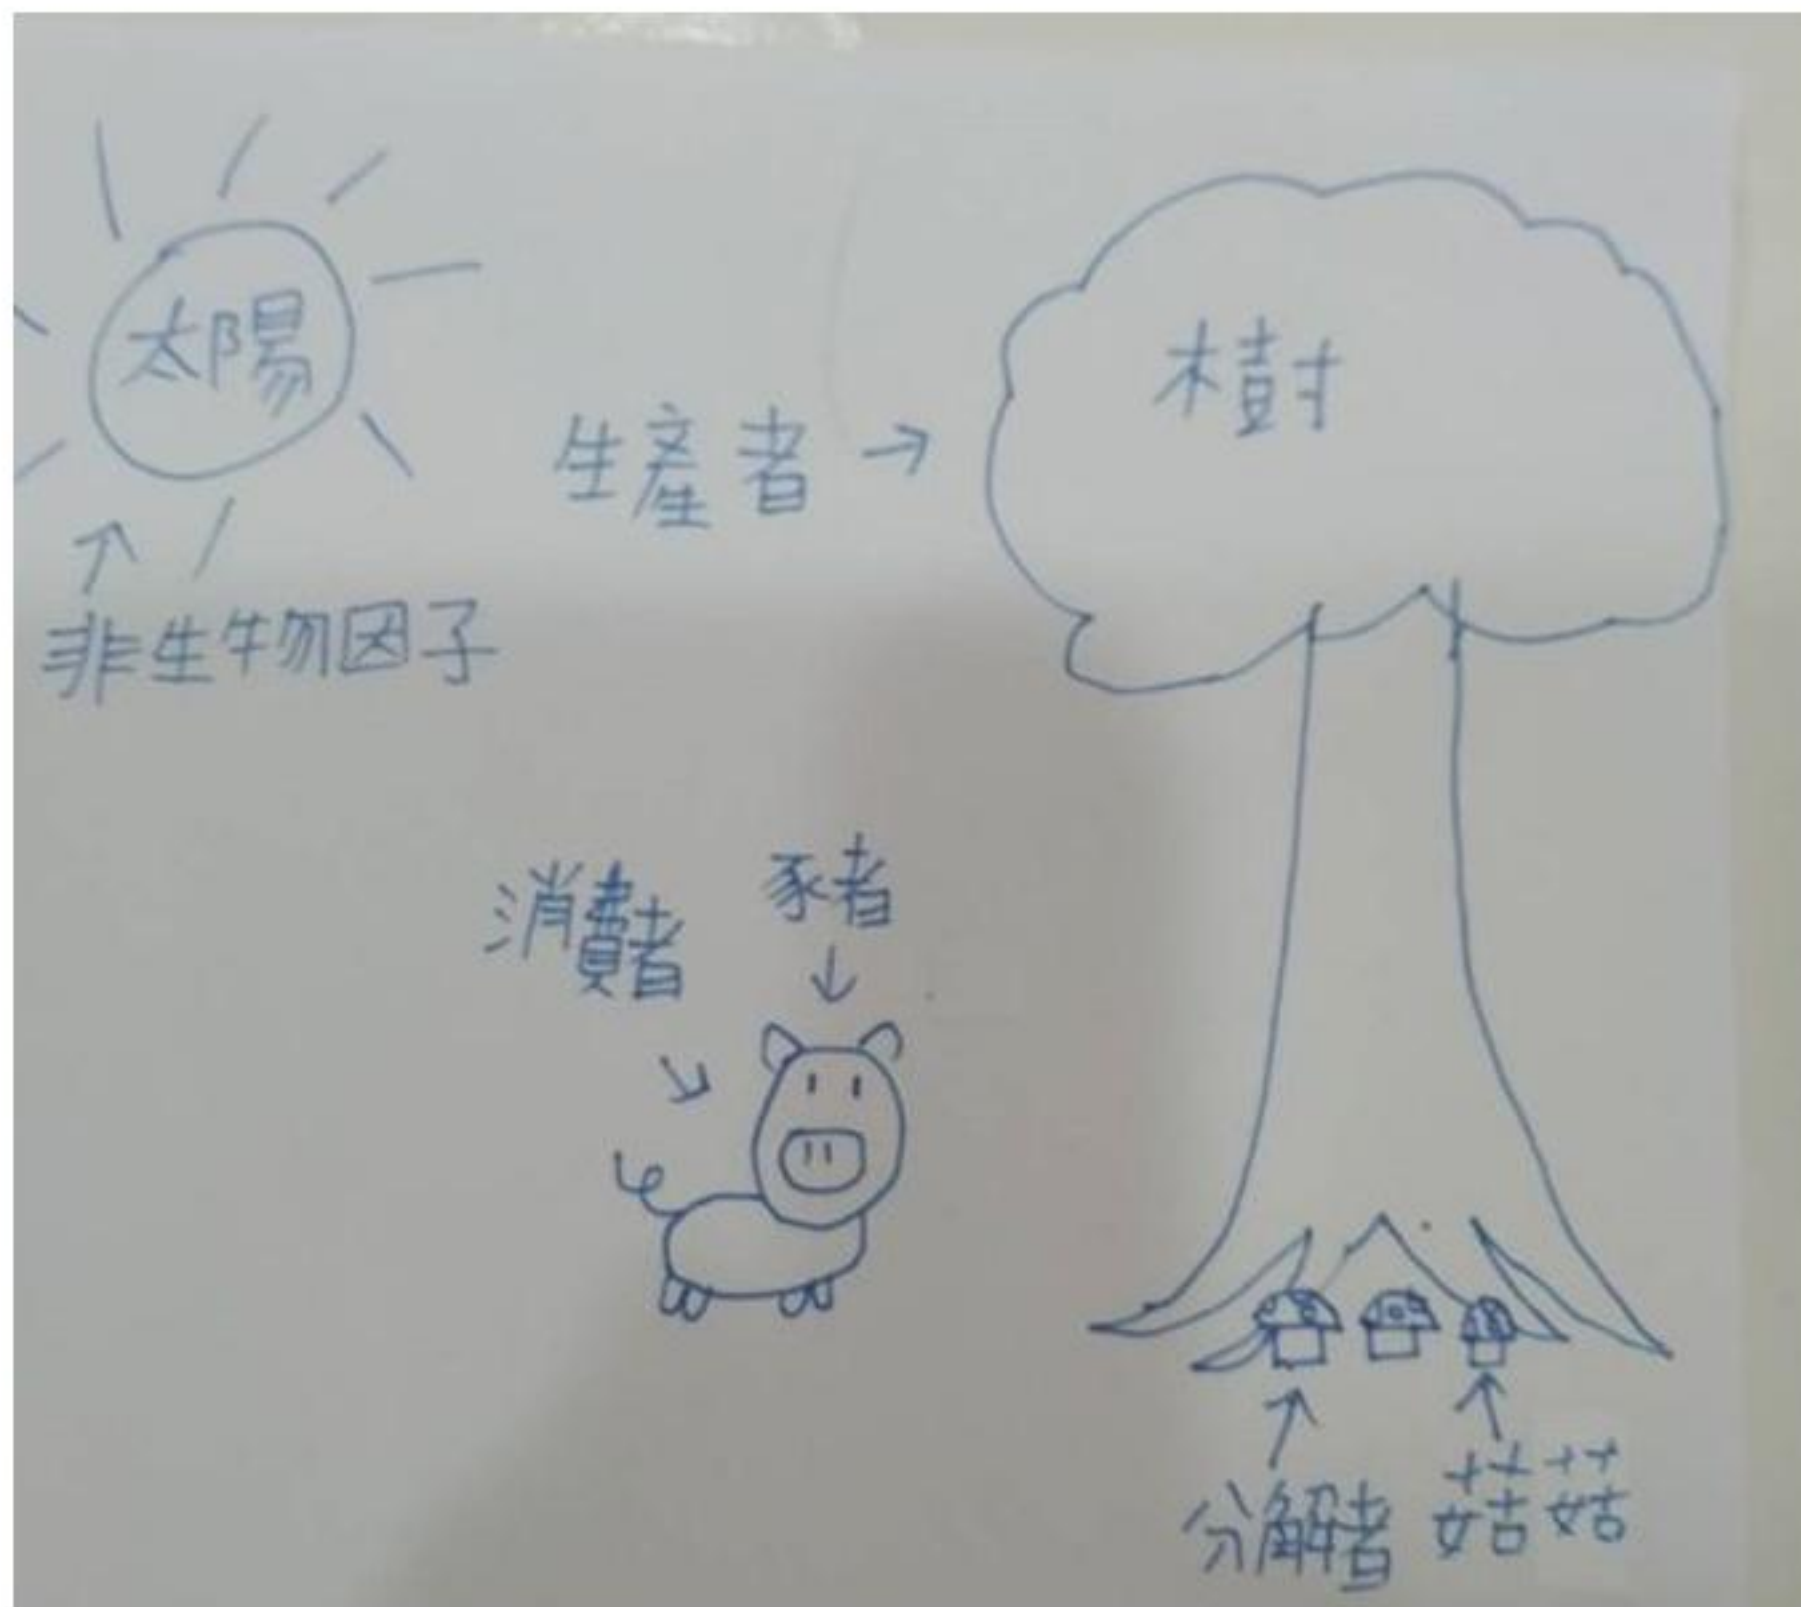 太陽
生產者→
樹
非生物因子
消費者
豬
分解者
菇菇